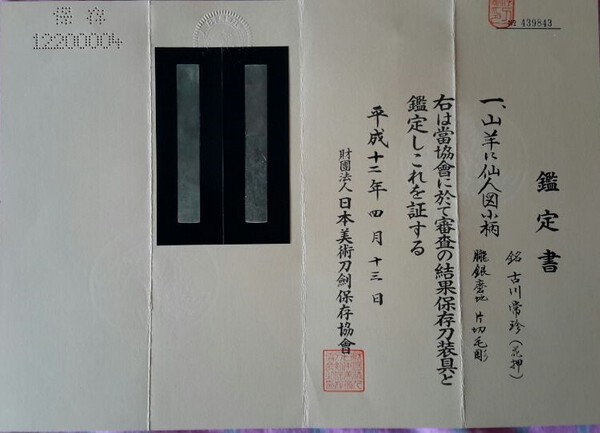 鑑定書
№ 439843
一、山羊に仙人図小柄
銘 古川常珍(花押)
朧銀磨地 片切毛彫
右は當協會に於て審査の結果保存刀装具と
鑑定しこれを証する
平成十二年四月十三日
財團法人 日本美術刀劍保存協會
保存
12200004